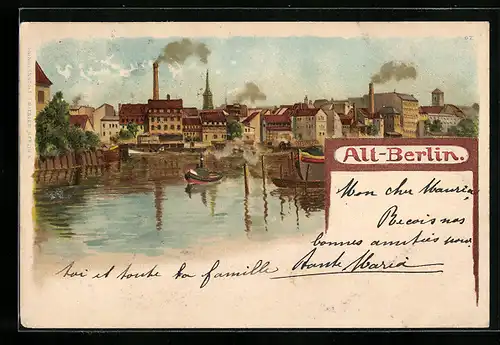 Alt-Berlin.
Mon cher Maurice
Recois nos
bonnes amitiés pour
toi et toute ta famille Tante Maria